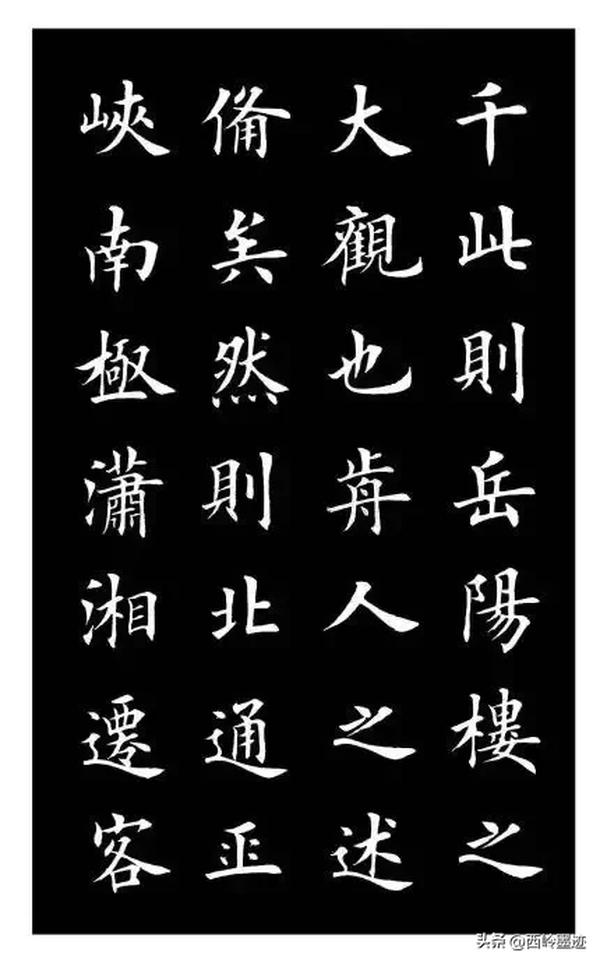 千此則岳陽樓之
大觀也歬人之述
備矣然則北通巫
峽南極瀟湘遷客
头条 @西岭墨迹